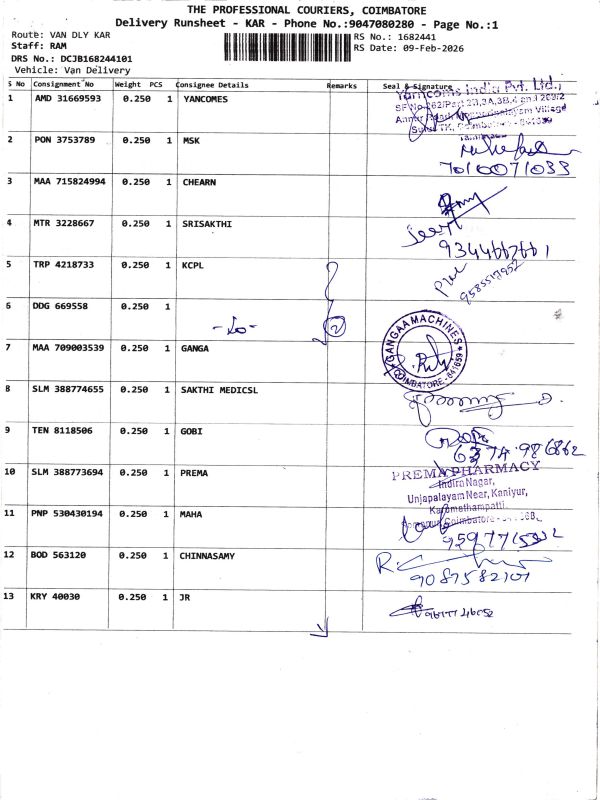 THE PROFESSIONAL COURIERS, COIMBATORE
Delivery Runsheet - KAR - Phone No.:9047080280 - Page No.:1
Route: VAN DLY KAR
Staff: RAM
DRS No.: DCJB168244101
Vehicle: Van Delivery
RS No.: 1682441
RS Date: 09-Feb-2026
S No Consignment No Weight PCS Consignee Details Remarks Seal & Signature
1 AMD 31669593 0.250 1 YANCOMES
Yarncoms India Pvt. Ltd.,
2 PON 3753789 0.250 1 MSK
7010071033
3 MAA 715824994 0.250 1 CHEARN
4 MTR 3228667 0.250 1 SRISAKTHI
9344667661
5 TRP 4218733 0.250 1 KCPL
9585512952
6 DDG 669558 0.250 1
2
7 MAA 709003539 0.250 1 GANGA
GANGAA MACHINES
COIMBATORE - 641659
8 SLM 388774655 0.250 1 SAKTHI MEDICSL
9 TEN 8118506 0.250 1 GOBI
6374986862
10 SLM 388773694 0.250 1 PREMA
PREMA PHARMACY
Indira Nagar,
Unjapalayam Near, Kaniyur,
Karumethampatti
11 PNP 530430194 0.250 1 MAHA
12 BOD 563120 0.250 1 CHINNASAMY
9087582101
13 KRY 40030 0.250 1 JR